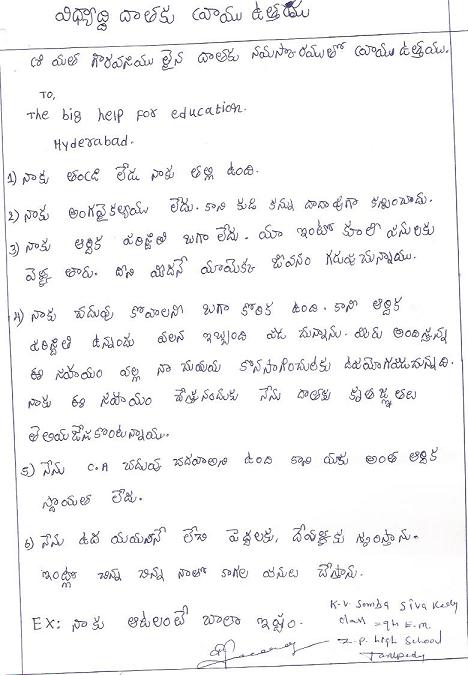 విధ్యార్ధి దాతకు వ్రాయు ఉత్తరము
యత గౌరవనియు లైన దాతకు నమస్కారములతో వ్రాయు ఉత్తయు.
TO,
The big help for education.
Hyderabad.
1) నాకు తండ్రి లేడు నాకు తల్లి ఉంది.
2) నాకు అంగవైకల్యాయు లేదు. కాని కుడి కన్ను
3) నాకు ఆర్ధిక పరిస్థితి బగా లేదు. మా ఇంటో కూలి పనులకు
వెళ్ళ తారు. దాని మిదనే మాయొక్క జీవనం గడుపు చున్నాయు.
4) నాకు చదువు కోవాలని బగా కోరిక ఉంది. కాని ఆర్ధిక
పరిస్థితి వలన ఇబ్బంది పడ చున్నాను. మీరు అందిస్తున్న
ఈ సహాయం వల్ల నా చదువు కొనసాగించుటకు ఉపయోగపడుచున్నది.
నాకు ఈ సహాయం చేస్తునందుకు నేను దాతకు కృతజ్ఞతలు
తెలియజేసకొంటున్నాయు.
5) నేను C.A చదువు చదవాలని ఉంది కాని మాకు అంత ఆర్ధిక
స్థాయత లేదు.
6) నేను ఉదయముననే లేచి పెద్దలకు, దేవుళ్ళకు
ఇంట్లో చిన్న చిన్న నాతో కాగల పనులు చేస్తాను.
EX: నాకు ఆటలంటే చాలా ఇష్టం.
K.V Samba Siva Reddy
class = 9th E.M.
Z.P. high School